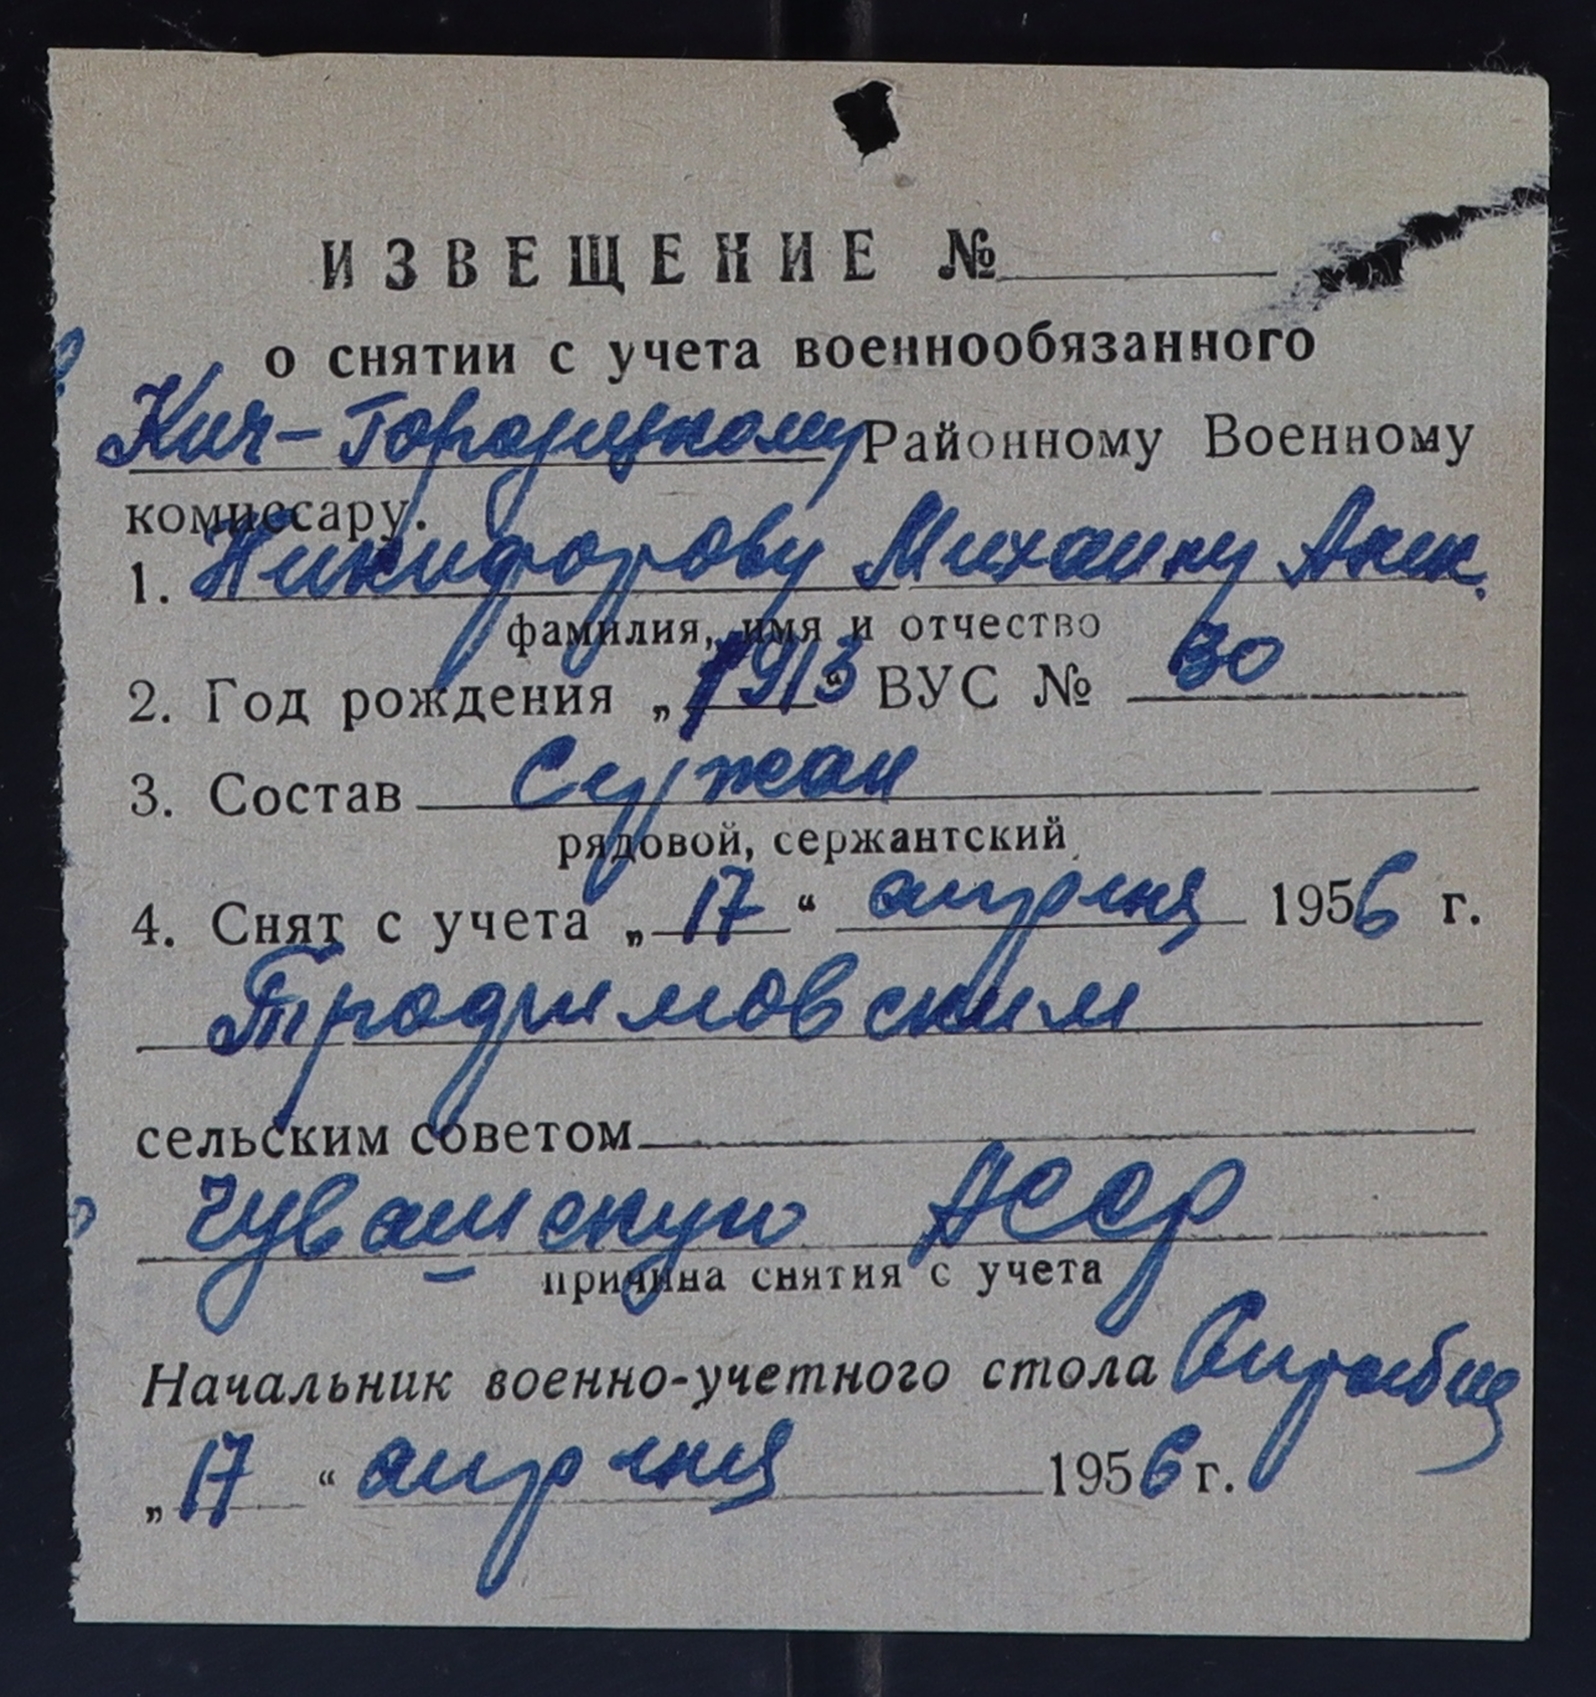 ИЗВЕЩЕНИЕ №
о снятии с учета военнообязанного
Кич-Городецкому Районному Военному
комиссару.
1. Никифорову Михаилу Аким.
фамилия, имя и отчество
2. Год рождения „1913“ ВУС № 30
3. Состав Сержан
рядовой, сержантский
4. Снят с учета „17“ апреля 1956 г.
Трофимовским
сельским советом
Чувашскую АССР
причина снятия с учета
Начальник военно-учетного стола
„17“ апреля 1956 г.